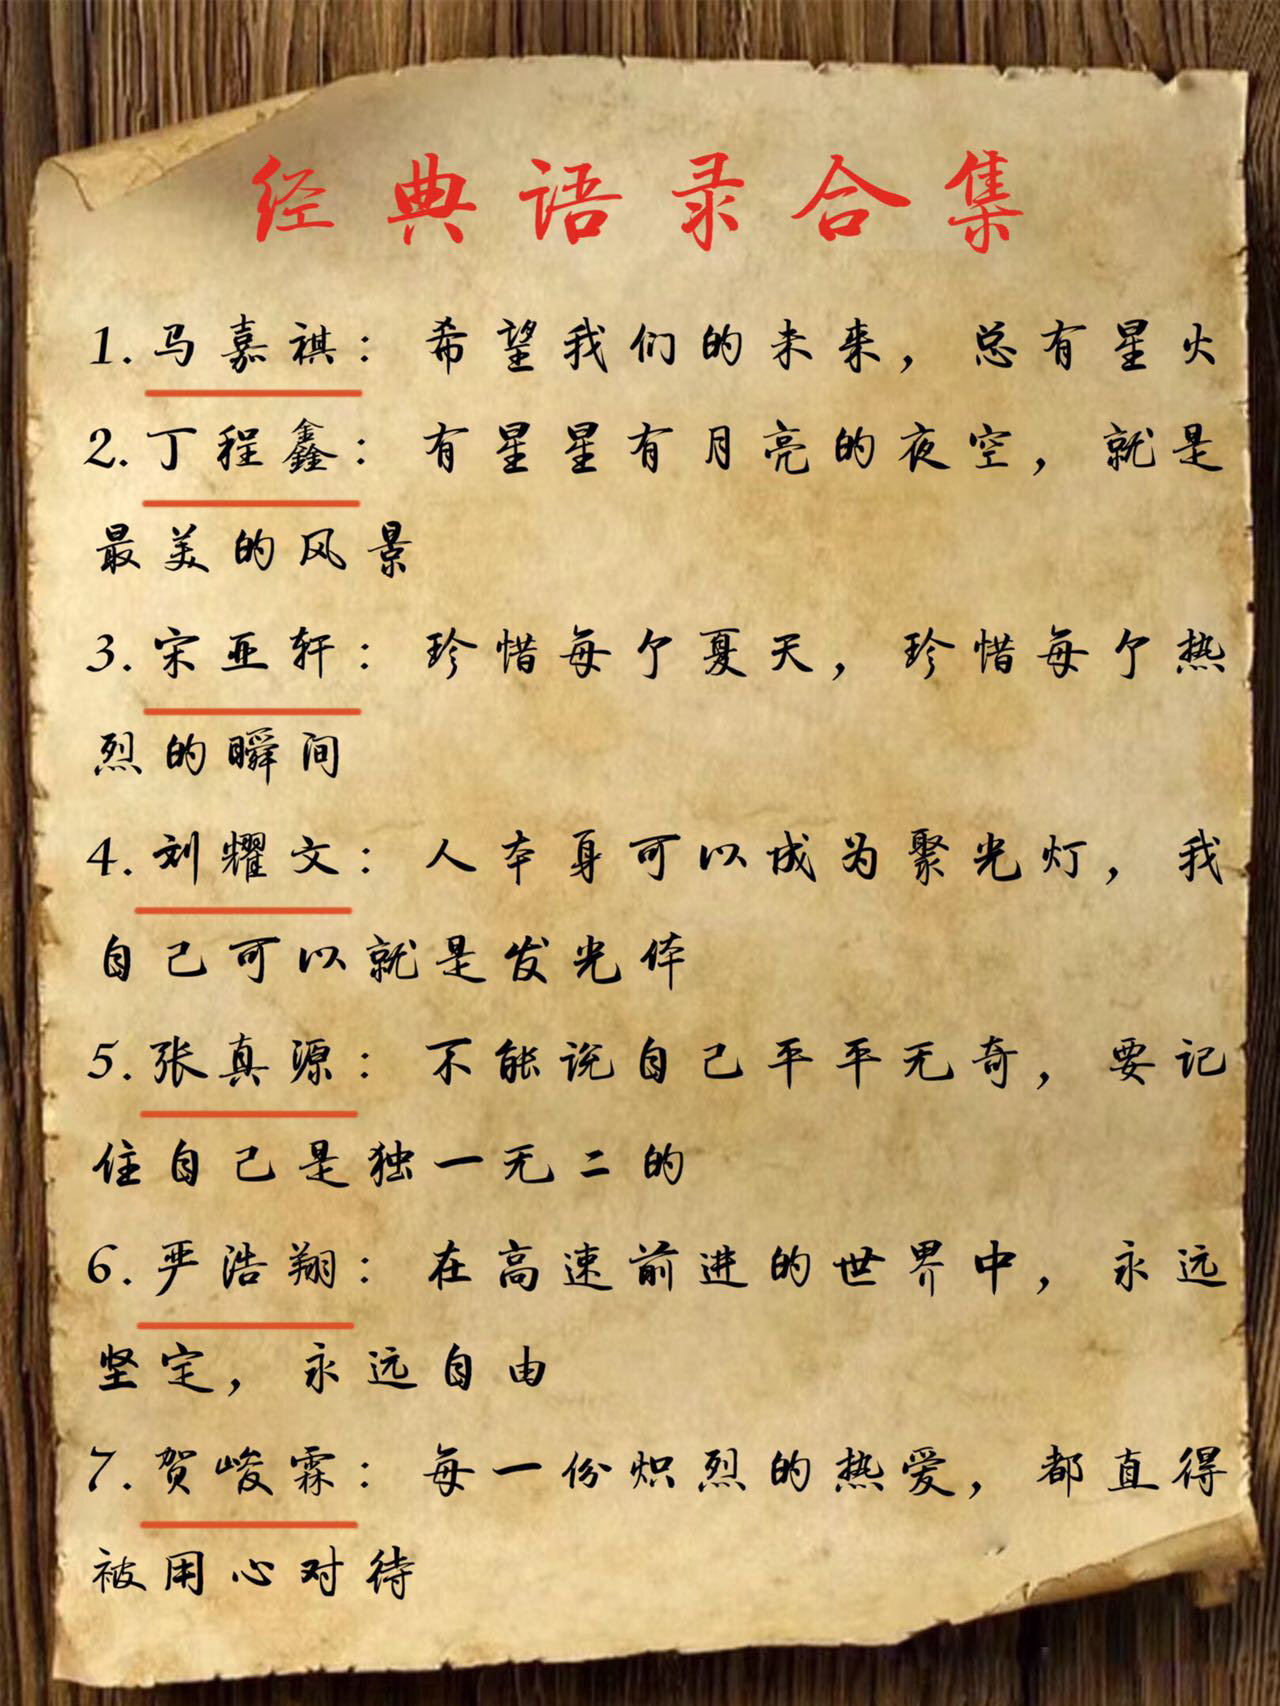 经典语录合集
1.马嘉祺：希望我们的未来，总有星火
2.丁程鑫：有星星有月亮的夜空，就是
最美的风景
3.宋亚轩：珍惜每个夏天，珍惜每个热
烈的瞬间
4.刘耀文：人本身可以成为聚光灯，我
自己可以就是发光体
5.张真源：不能说自己平平无奇，要记
住自己是独一无二的
6.严浩翔：在高速前进的世界中，永远
坚定，永远自由
7.贺峻霖：每一份炽烈的热爱，都直得
被用心对待